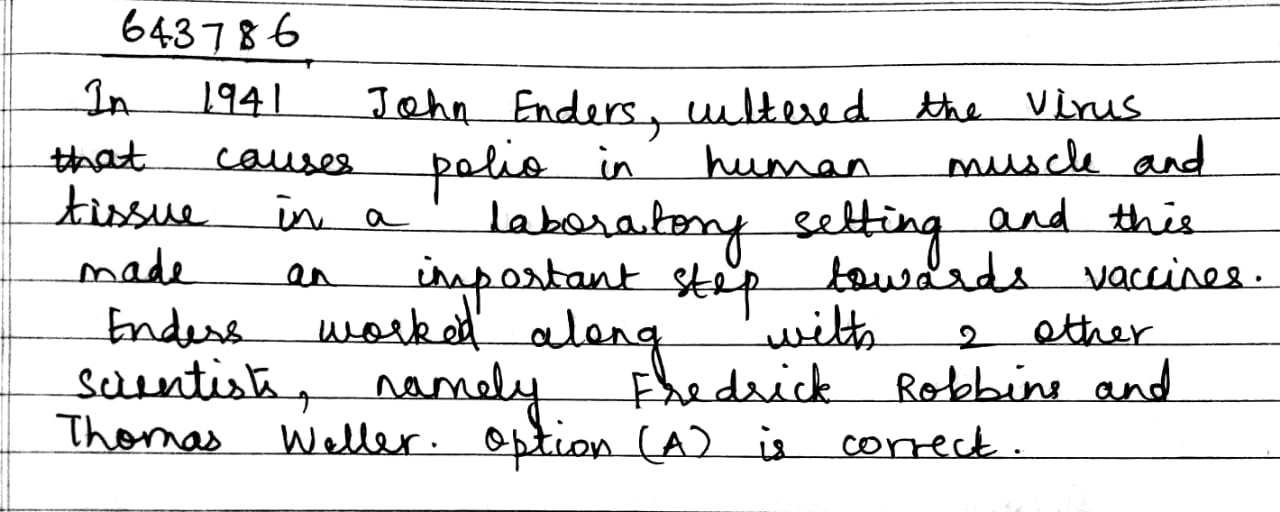 643786
In 1941 John Enders, cultered the virus
that causes polio in human muscle and
tissue in a laboratory setting and this
made an important step towards vaccines.
Enders worked along with 2 other
scientists, namely Fredrick Robbins and
Thomas Weller. Option (A) is correct.